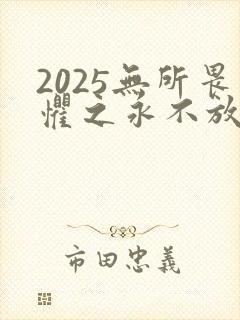 2025無所畏
懼之永不放
市田忠義